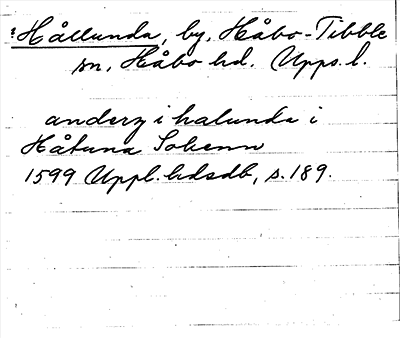 Hållunda, by, Håbo-Tibble
sn, Håbo hd. Upps. l.
anderz i halunda i
Håtuna Sokenn
1599 Uppl. hdsdb, s. 189.